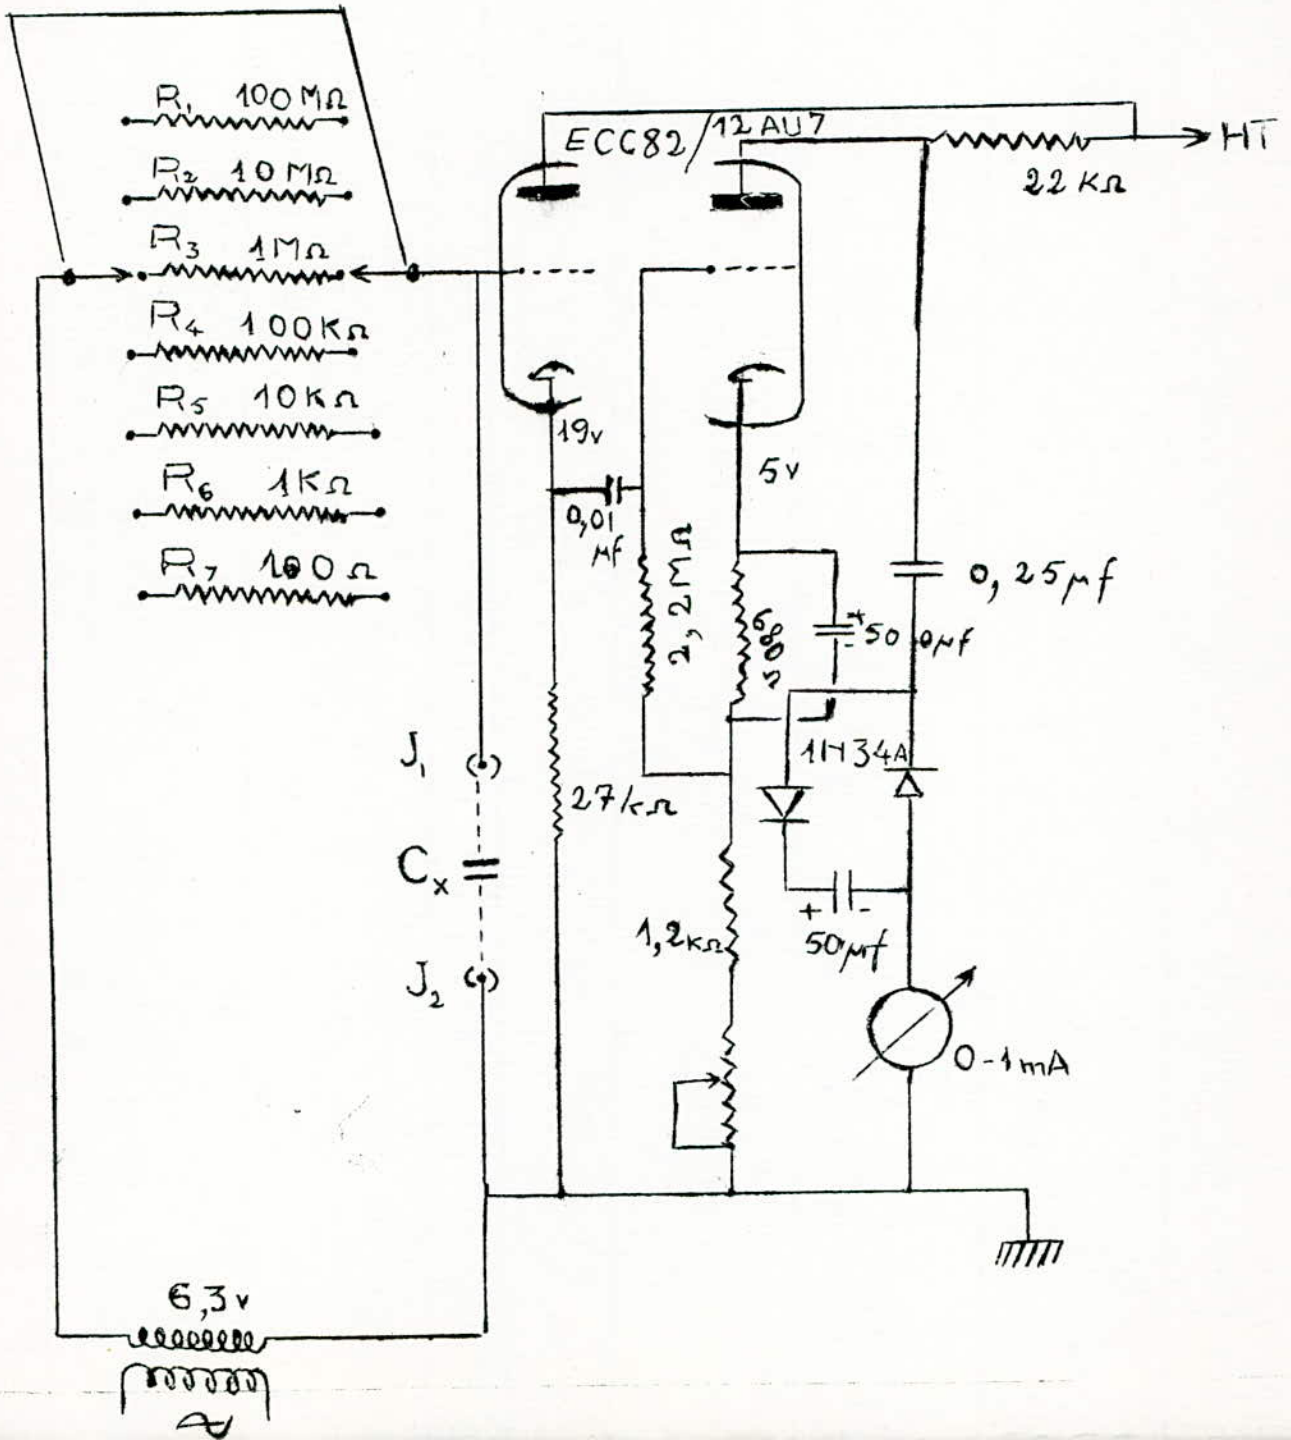 R1 100MΩ
R2 10MΩ
R3 1MΩ
R4 100KΩ
R5 10KΩ
R6 1KΩ
R7 100Ω
ECC82/12AU7
HT
22KΩ
19v
5v
0,01
μf
2,2MΩ
680Ω
+
-
0,25μf
1N34A
J1
Cx
J2
27kΩ
1,2KΩ
+ -
50μf
0-1mA
6,3v